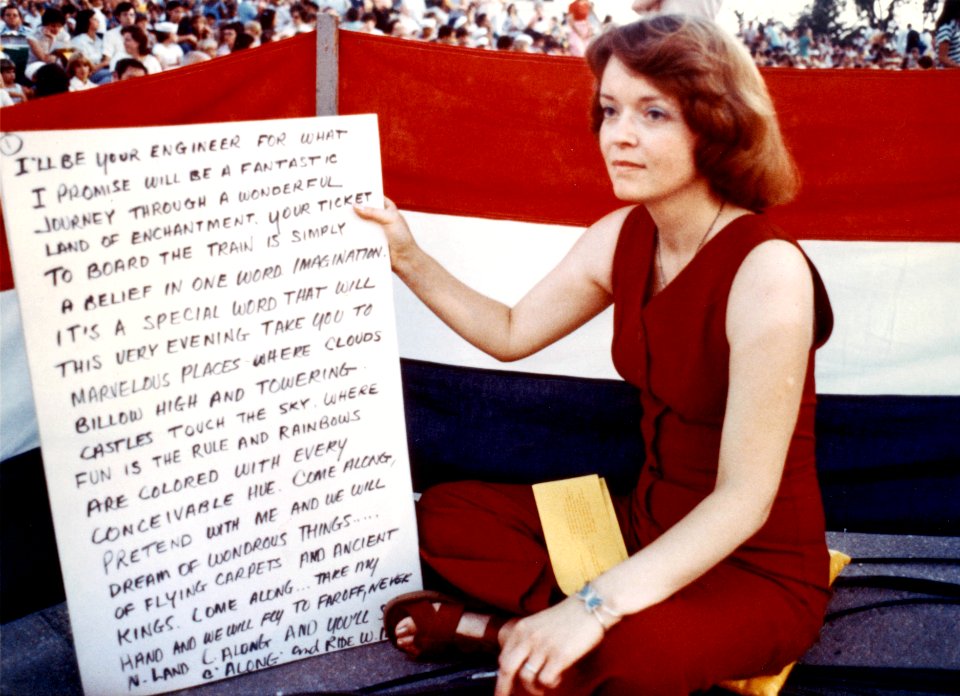 1
I'LL BE YOUR ENGINEER FOR WHAT
I PROMISE WILL BE A FANTASTIC
JOURNEY THROUGH A WONDERFUL
LAND OF ENCHANTMENT. YOUR TICKET
TO BOARD THE TRAIN IS SIMPLY
A BELIEF IN ONE WORD IMAGINATION.
IT'S A SPECIAL WORD THAT WILL
THIS VERY EVENING TAKE YOU TO
MARVELOUS PLACES-WHERE CLOUDS
BILLOW HIGH AND TOWERING
CASTLES TOUCH THE SKY. WHERE
FUN IS THE RULE AND RAINBOWS
ARE COLORED WITH EVERY
CONCEIVABLE HUE. COME ALONG,
PRETEND WITH ME AND WE WILL
DREAM OF WONDROUS THINGS.....
OF FLYING CARPETS AND ANCIENT
KINGS. COME ALONG... TAKE MY
HAND AND WE WILL FLY TO FAROFF, NEVER
N-LAND C. ALONG AND YOU'LL
C. ALONG and RIDE W.